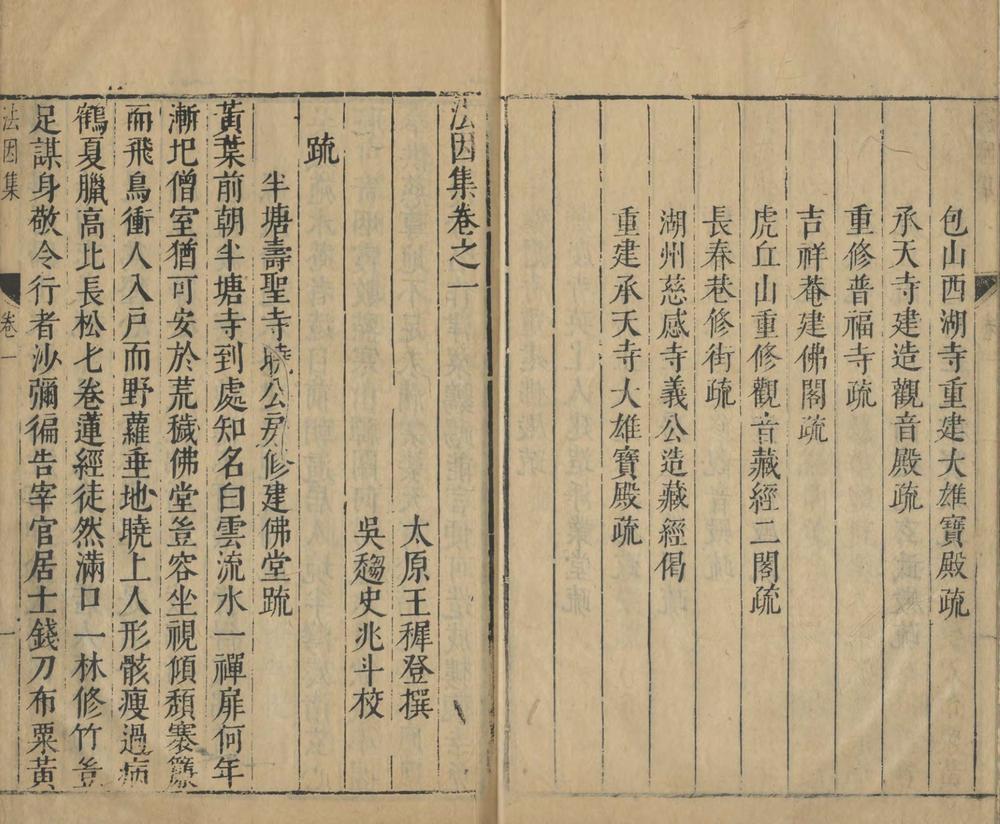 包山西湖寺重建大雄寶殿疏
承天寺建造觀音殿疏
重修普福寺疏
吉祥菴建佛閣疏
虎丘山重修觀音藏經二閣疏
長春巷修街疏
湖州慈感寺義公造藏經偈
重建承天寺大雄寶殿疏
法因集卷之一
太原王穉登撰
吳趨史兆斗校
疏
半塘壽聖寺曉公房修建佛堂疏
黃葉前朝半塘寺到處知名白雲流水一禪扉何年
漸圯僧室猶可安於荒穢佛堂豈容坐視傾頹褰簾
而飛鳥衝人入戶而野蘿垂地曉上人形骸瘦過病
鶴夏臘高比長松七卷蓮經徒然滿口一林修竹豈
足謀身敬令行者沙彌徧告宰官居士錢刀布粟黃
法因集
卷一
一